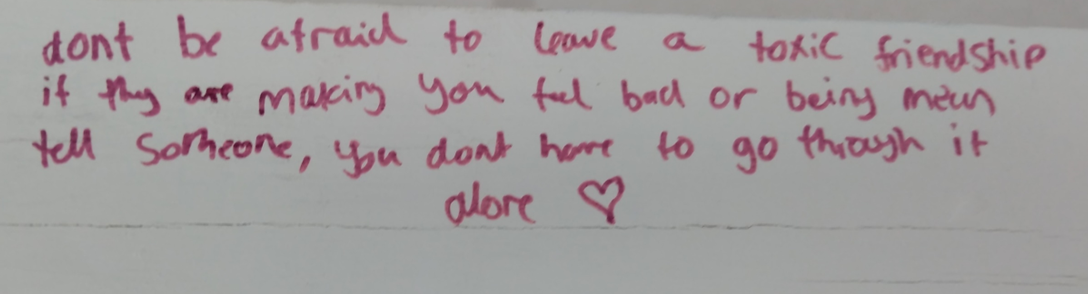 dont be afraid to leave a toxic friendship
if they are making you feel bad or being mean
tell someone, you dont have to go through it
alone ♡